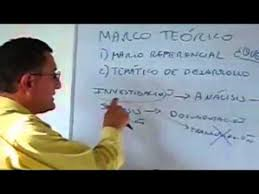 MARCO TEÓRICO
1) MARCO REFERENCIAL
2) TEMÁTICO DE DESARROLLO
INVESTIGACIÓN → ANÁLISIS
→ DOCUMENTACIÓN